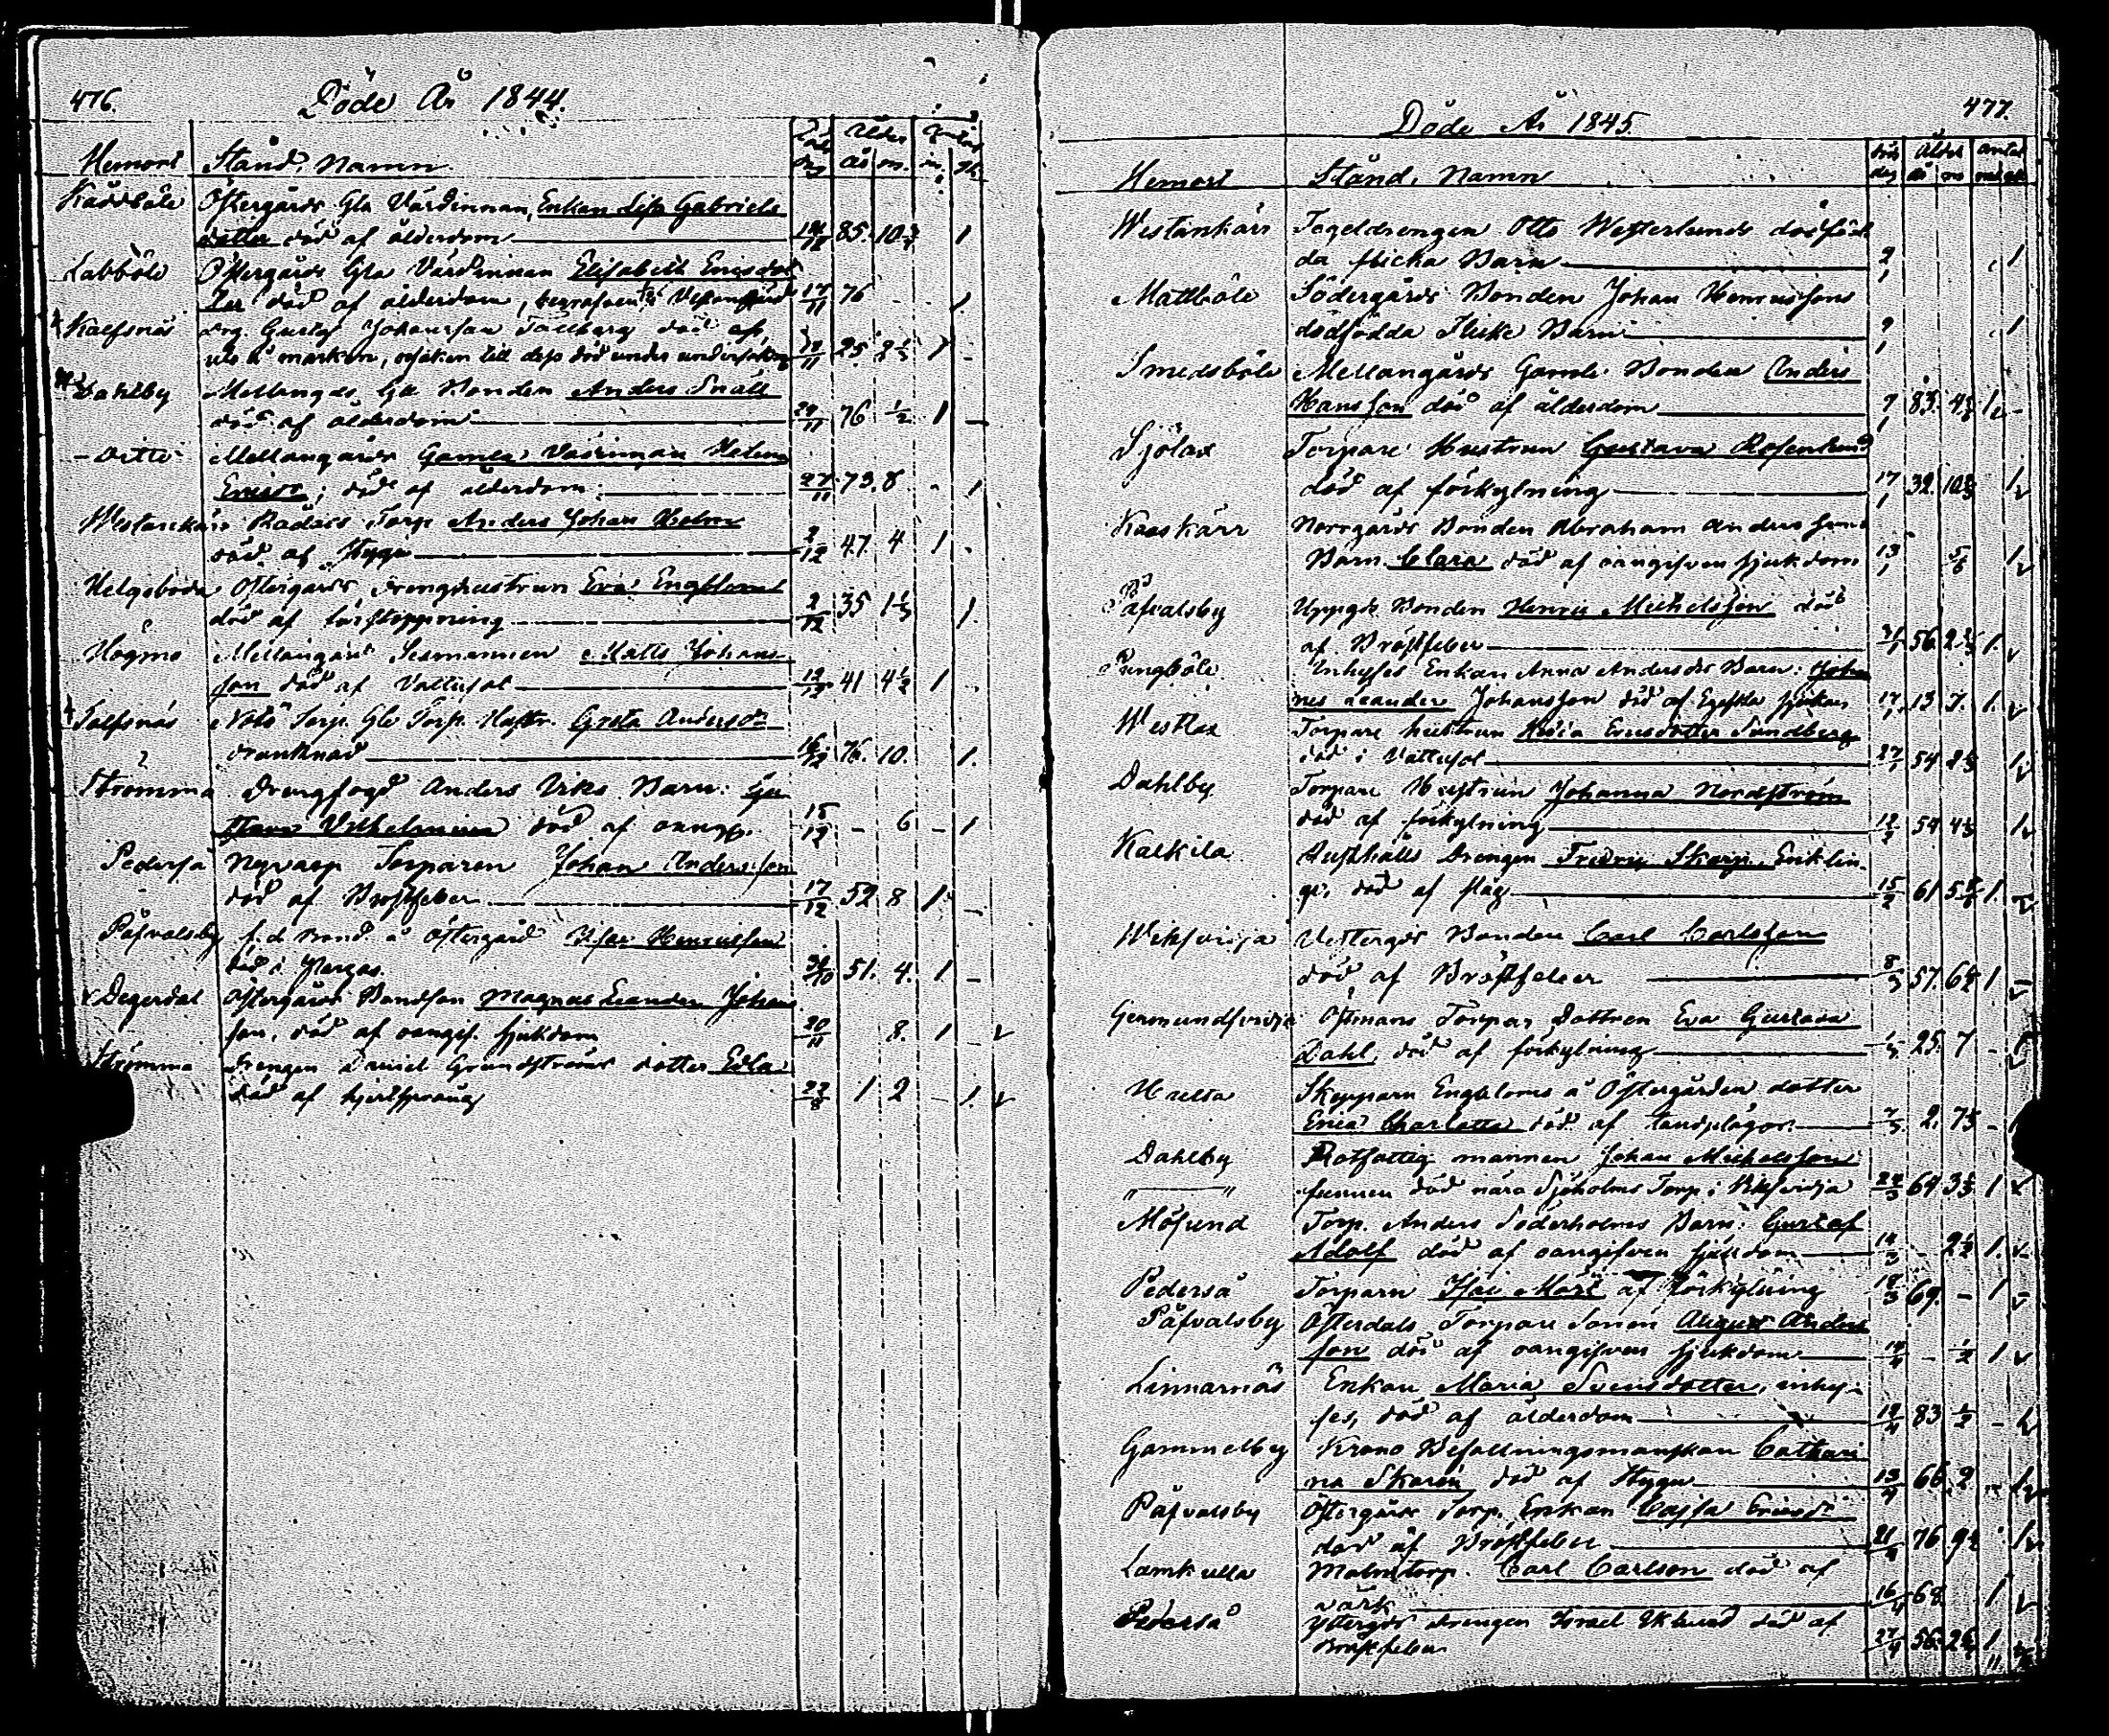 476.
Döde År 1844.
Hemort Stånd, Namn
Döds dag Ålder år m. m. qk.
Kåddböle Östergårds Gla Värdinnan, Enkan Lisa Gabriels
dotter död af ålderdom 85. 10 1
Labböle Östergårds Gla Värdinnan Elisabeth Ericsdot
ter död af ålderdom, begrafven 17/11 76 1
Kalfsnäs drg. Gustaf Johansson Tallberg död
ute å marken, orsaken till dess död under undersökning 11 25 1 -
Dahlby Mellangds Gle Bonden Anders Snäll
död af ålderdom 24/11 76 1/2 1 -
- ditto - Mellangårds Gamla Värdinnan Helena
Ericsd; död af ålderdom 27/11 73. 8 - 1
Westankärr Rådais Torp. Anders Johan Holm
död af Stygn 2/12 47 4 1 -
Helgeboda Östergårds drenghustrun Eva Engblom
död af förstoppning 2/12 35 1 1/2 1.
Högmo Mellangård Sexmannen Matts Johans
son död af Vattusot 12/12 41 4 1/2 1
Torp. Gle Torp. Hustr. Greta Andersdr
drunknad 16/12 76. 10. 1.
Strömma Drengfogd Anders Viks Barn: Gu
stava Vilhelmina död af oangif. 15/12 - 6 - 1
Pederså Nyvarp Torparen Johan Andersson
död af Bröstfeber 17/12 52 8 1 -
Påfvalsby f.d. Bond. å Östergård Isac Henricsson
död i Pargas. 51. 4. 1 -
Degerdal Östergårds Bondson Magnus Leander Johans
son, död af oangif. sjukdom 20/11 8. 1 v
Strömma Drengen Daniel Grundströms dotter Edla
död af hjertsprång 1 2 - 1. v
477.
Döde År 1845.
Hemort Stånd, Namn
döds dag Ålder år m antal m qk
Westankärr Tegeldrengen Otto Westerlunds dödföd
da flicka Barn 2/1 1
Mattböle Södergårds Bonden Johan Henricssons
dödfödda Flicke Barn 9/1 1
Smedsböle Mellangårds Gamle Bonden Anders
Hansson död af ålderdom 9/1 83. 1 -
Sjölax Torpare Hustrun Gustava Rosenlund
död af förkylning 17/1 32. 1v
Kaaskärr Norrgårds Bonden Abraham Anderssons
Barn Clara död af oangifven sjukdom 13/1 1v
Påfvalsby Uppgds Bonden Henric Michelsson död
af Bröstfeber 56. 1. v
Pungböle Inhyses Enkan Anna Andersdrs Barn: Johan
nes Leander Johansson död af sjukan 17/1 13 7. 1. v
Westlax Torpare hustrun Ericsdotter Sundberg
död i Vattusot 27/1 54 1v
Dahlby Torpare Hustrun Johanna Nordström
död af förkylning 12/2 54 1v
Kalkila Rusthålls Drengen Fredric Skarp,
död af slag 15/2 61 1. v
Wiksvidja Vestergds Bonden Carl Carlsson
död af Bröstfeber 8/3 57. 1 v
Germundsvidja Torpar Dottren Eva Gustava
Dahl, död af förkylning 25. 7 -
Skepparn Engbloms å Östergården dotter
Erica Charlotta död af tandplågor. 2. -
Dahlby Rotfattig mannen Johan Michelsson
„ — „ funnen död nära Sjöholms Torp i Wiksvidja 1 v
Mösund Torp. Anders Söderholms Barn: Gustaf
Adolf död af oangifven sjukdom 14/3 - 2 1/2 1. v
Pederså Torparn Isac Mört af Förkylning 69. - 1 v
Påfvalsby Österdals Torpare Sonen August Anders
son död af oangifven sjukdom 14/4 - 1/2 1 v
Linnarnäs Enkan Maria Svensdotter, inhy-
ses, död af ålderdom 12/4 83 1/2 - 1v
Gammelby Krono Befallningsmanskan Cathari
na Skarin död af Stygn 13/4 66 2 - 1v
Påfvalsby Östergårds Torp. Enkan Cajsa Ericsdr
död af Bröstfeber 21/4 76 1v
Lamkulla Malmstorp. Carl Carlsson död af
värk 16/4 68 1 v
Pederså Yttergds drengen Israel Eklund död af
Bröstfeber 27/4 56 1 v